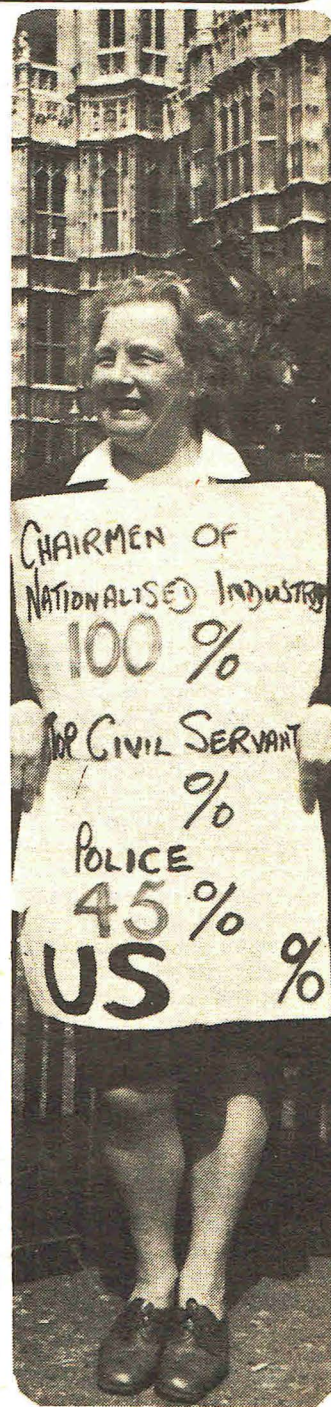 CHAIRMEN OF
NATIONALISED INDUSTRY
100 %
TOP CIVIL SERVANT
%
POLICE
45 %
US %